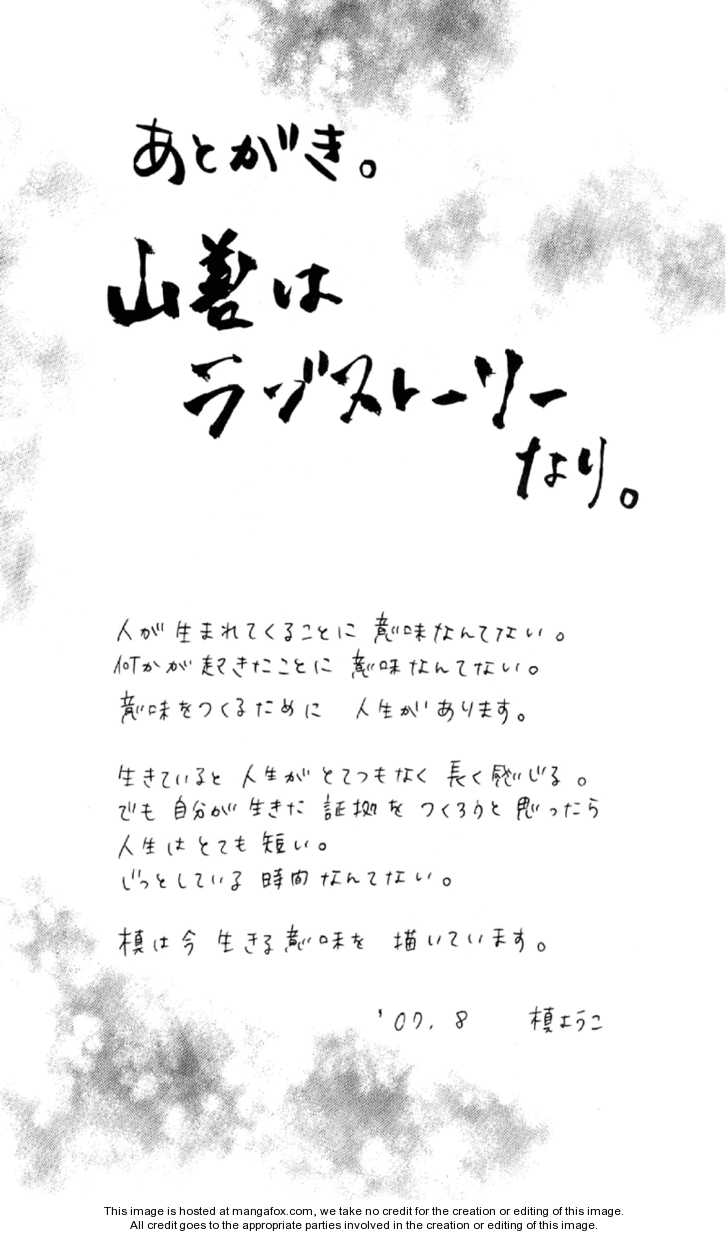 あとがき。
山善は
ラヴストーリー
なり。
人が生まれてくることに 意味なんてない。
何かが起きたことに 意味なんてない。
意味をつくるために 人生があります。
生きていると 人生が とてつもなく 長く感じる。
でも 自分が 生きた 証拠を つくろうと 思ったら
人生は とても 短い。
じっとしている 時間なんてない。
槙は今 生きる意味を 描いています。
'07. 8 槙ようこ
This image is hosted at mangafox.com, we take no credit for the creation or editing of this image.
All credit goes to the appropriate parties involved in the creation or editing of this image.